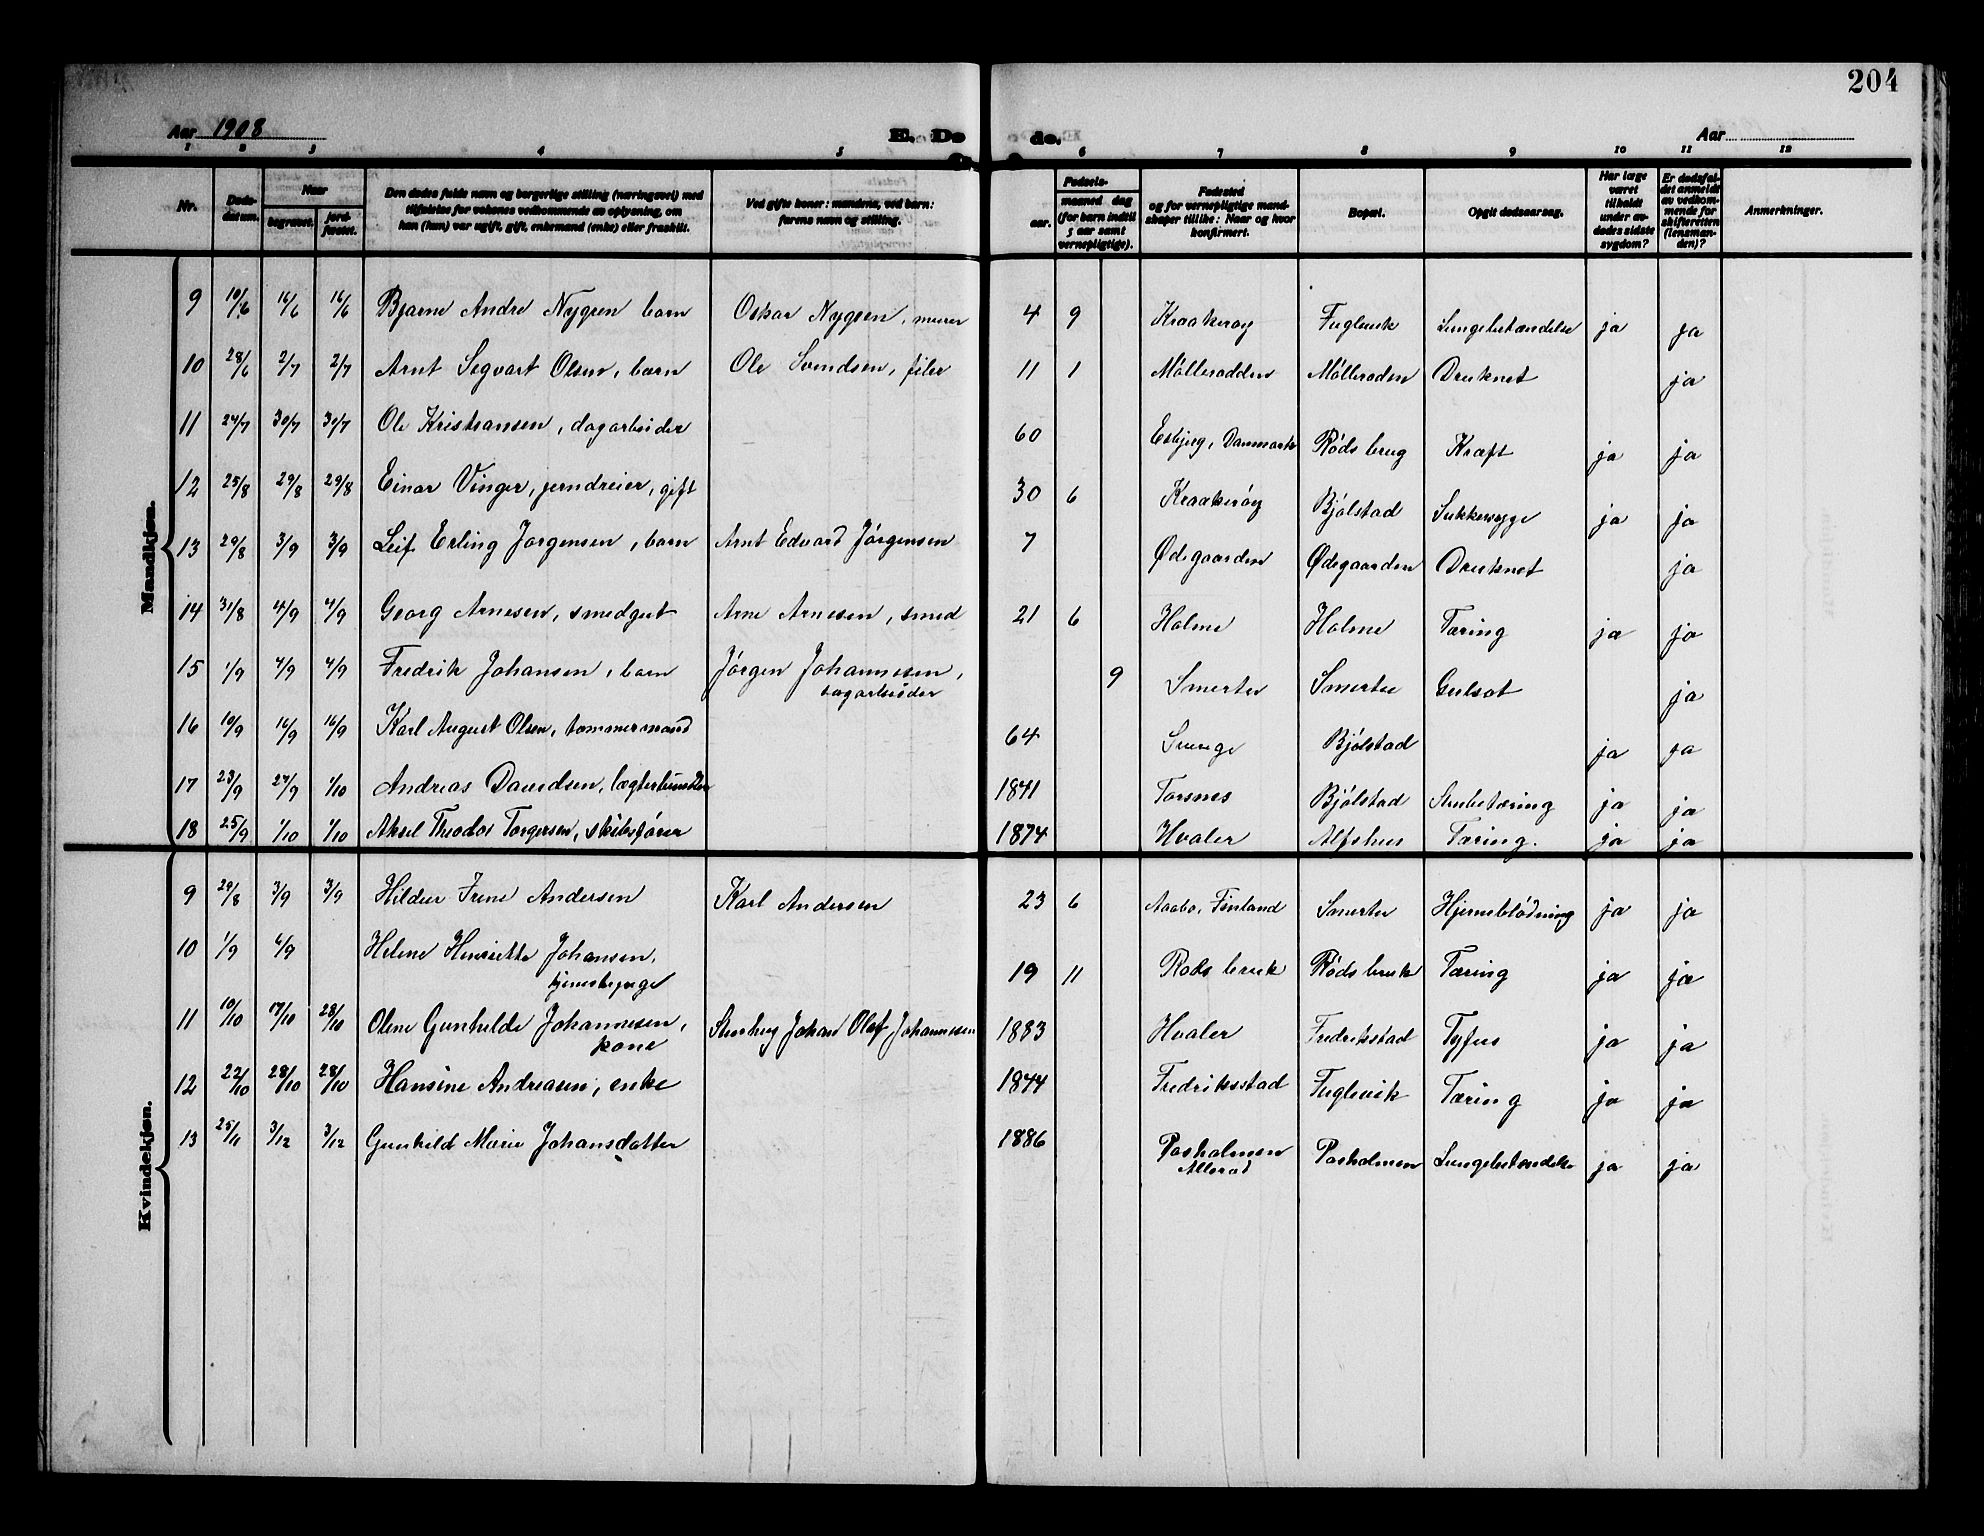 204
Aar 1908
E. Dø
de.
Aar
1 2 3 4 5 6 7 8 9 10 11 12
Nr.
Døds-
datum.
Naar
begravet.
jord-
fæstet.
Den dødes fulde navn og borgerlige stilling (næringsvei) med
tilføielse for voksnes vedkommende av oplysning, om
han (hun) var ugift, gift, enkemand (enke) eller fraskilt.
Ved gifte koner: mandens, ved barn:
farens navn og stilling.
Fødsels-
aar.
maaned dag
(for barn indtil
5 aar samt
vernepligtige).
Fødested
og for vernepligtige mand-
skaper tillike: Naar og hvor
konfirmert.
Bopæl.
Opgit dødsaarsag.
Har læge
været
tilkaldt
under av-
dødes sidste
sygdom?
Er dødsfal-
det anmeldt
av vedkom-
mende for
skifteretten
(lensman-
den)?
Anmerkninger.
Mandkjøn.
9 10/6 16/6 16/6 Bjarne Andre Nygren barn Oskar Nygren, murer 4 9 Kraakerøy Fuglevik Lungebetændelse ja ja
10 28/6 2/7 2/7 Arnt Segvart Olsen, barn Ole Svendsen, filer 11 1 Mølleradden Mølleroden Druknet ja
11 24/7 30/7 30/7 Ole Kristiansen, dagarbeider 60 Esbjerg, Danmark Røds brug Kræft ja ja
12 25/8 29/8 29/8 Einar Vinger, jerndreier, gift 30 6 Kraakerøy Bjølstad Sukkersyge ja ja
13 29/8 3/9 3/9 Leif Erling Jørgensen, barn Arnt Edvard Jørgensen 7 Ødegaarden Ødegaarden Druknet ja
14 31/8 4/9 4/9 Georg Arnesen, smedgut Arne Arnesen, smed 21 6 Holme Holme Tæring ja ja
15 1/9 4/9 4/9 Fredrik Johansen, barn Jørgen Johannesen,
sagarbeider 9 Smertu Smertu Gulsot ja
16 10/9 16/9 16/9 Karl August Olsen, tømmermand 64 Bjølstad ja ja
17 23/9 27/9 1/10 Andreas Davidsen, 1841 Torsnes Bjølstad Strubetæring ja ja
18 25/9 1/10 1/10 Aksel Theodor Torgersen, skibsfører 1874 Hvaler Alfshus Tæring. ja ja
Kvindekjøn.
9 29/8 3/9 3/9 Hildur Irene Andersen Karl Andersen 23 6 Aabo, Finland Smertu Hjerneblødning ja ja
10 1/9 4/9 Helene Henriette Johansen,
tjenestepige 19 11 Rods bruk Røds bruk Tæring ja ja
11 10/10 17/10 28/10 Oline Gunhilde Johannesen,
kone Stenhug Johan Olaf Johannesen 1883 Hvaler Fredrikstad Tyfus ja ja
12 22/10 28/10 28/10 Hansine Andreasen, enke 1844 Fredriksstad Fuglevik Tæring ja ja
13 25/11 3/12 3/12 Gunhild Marie Johansdatter 1886 Pasholmen
Allerød Pasholmen Lungebetændelse ja ja